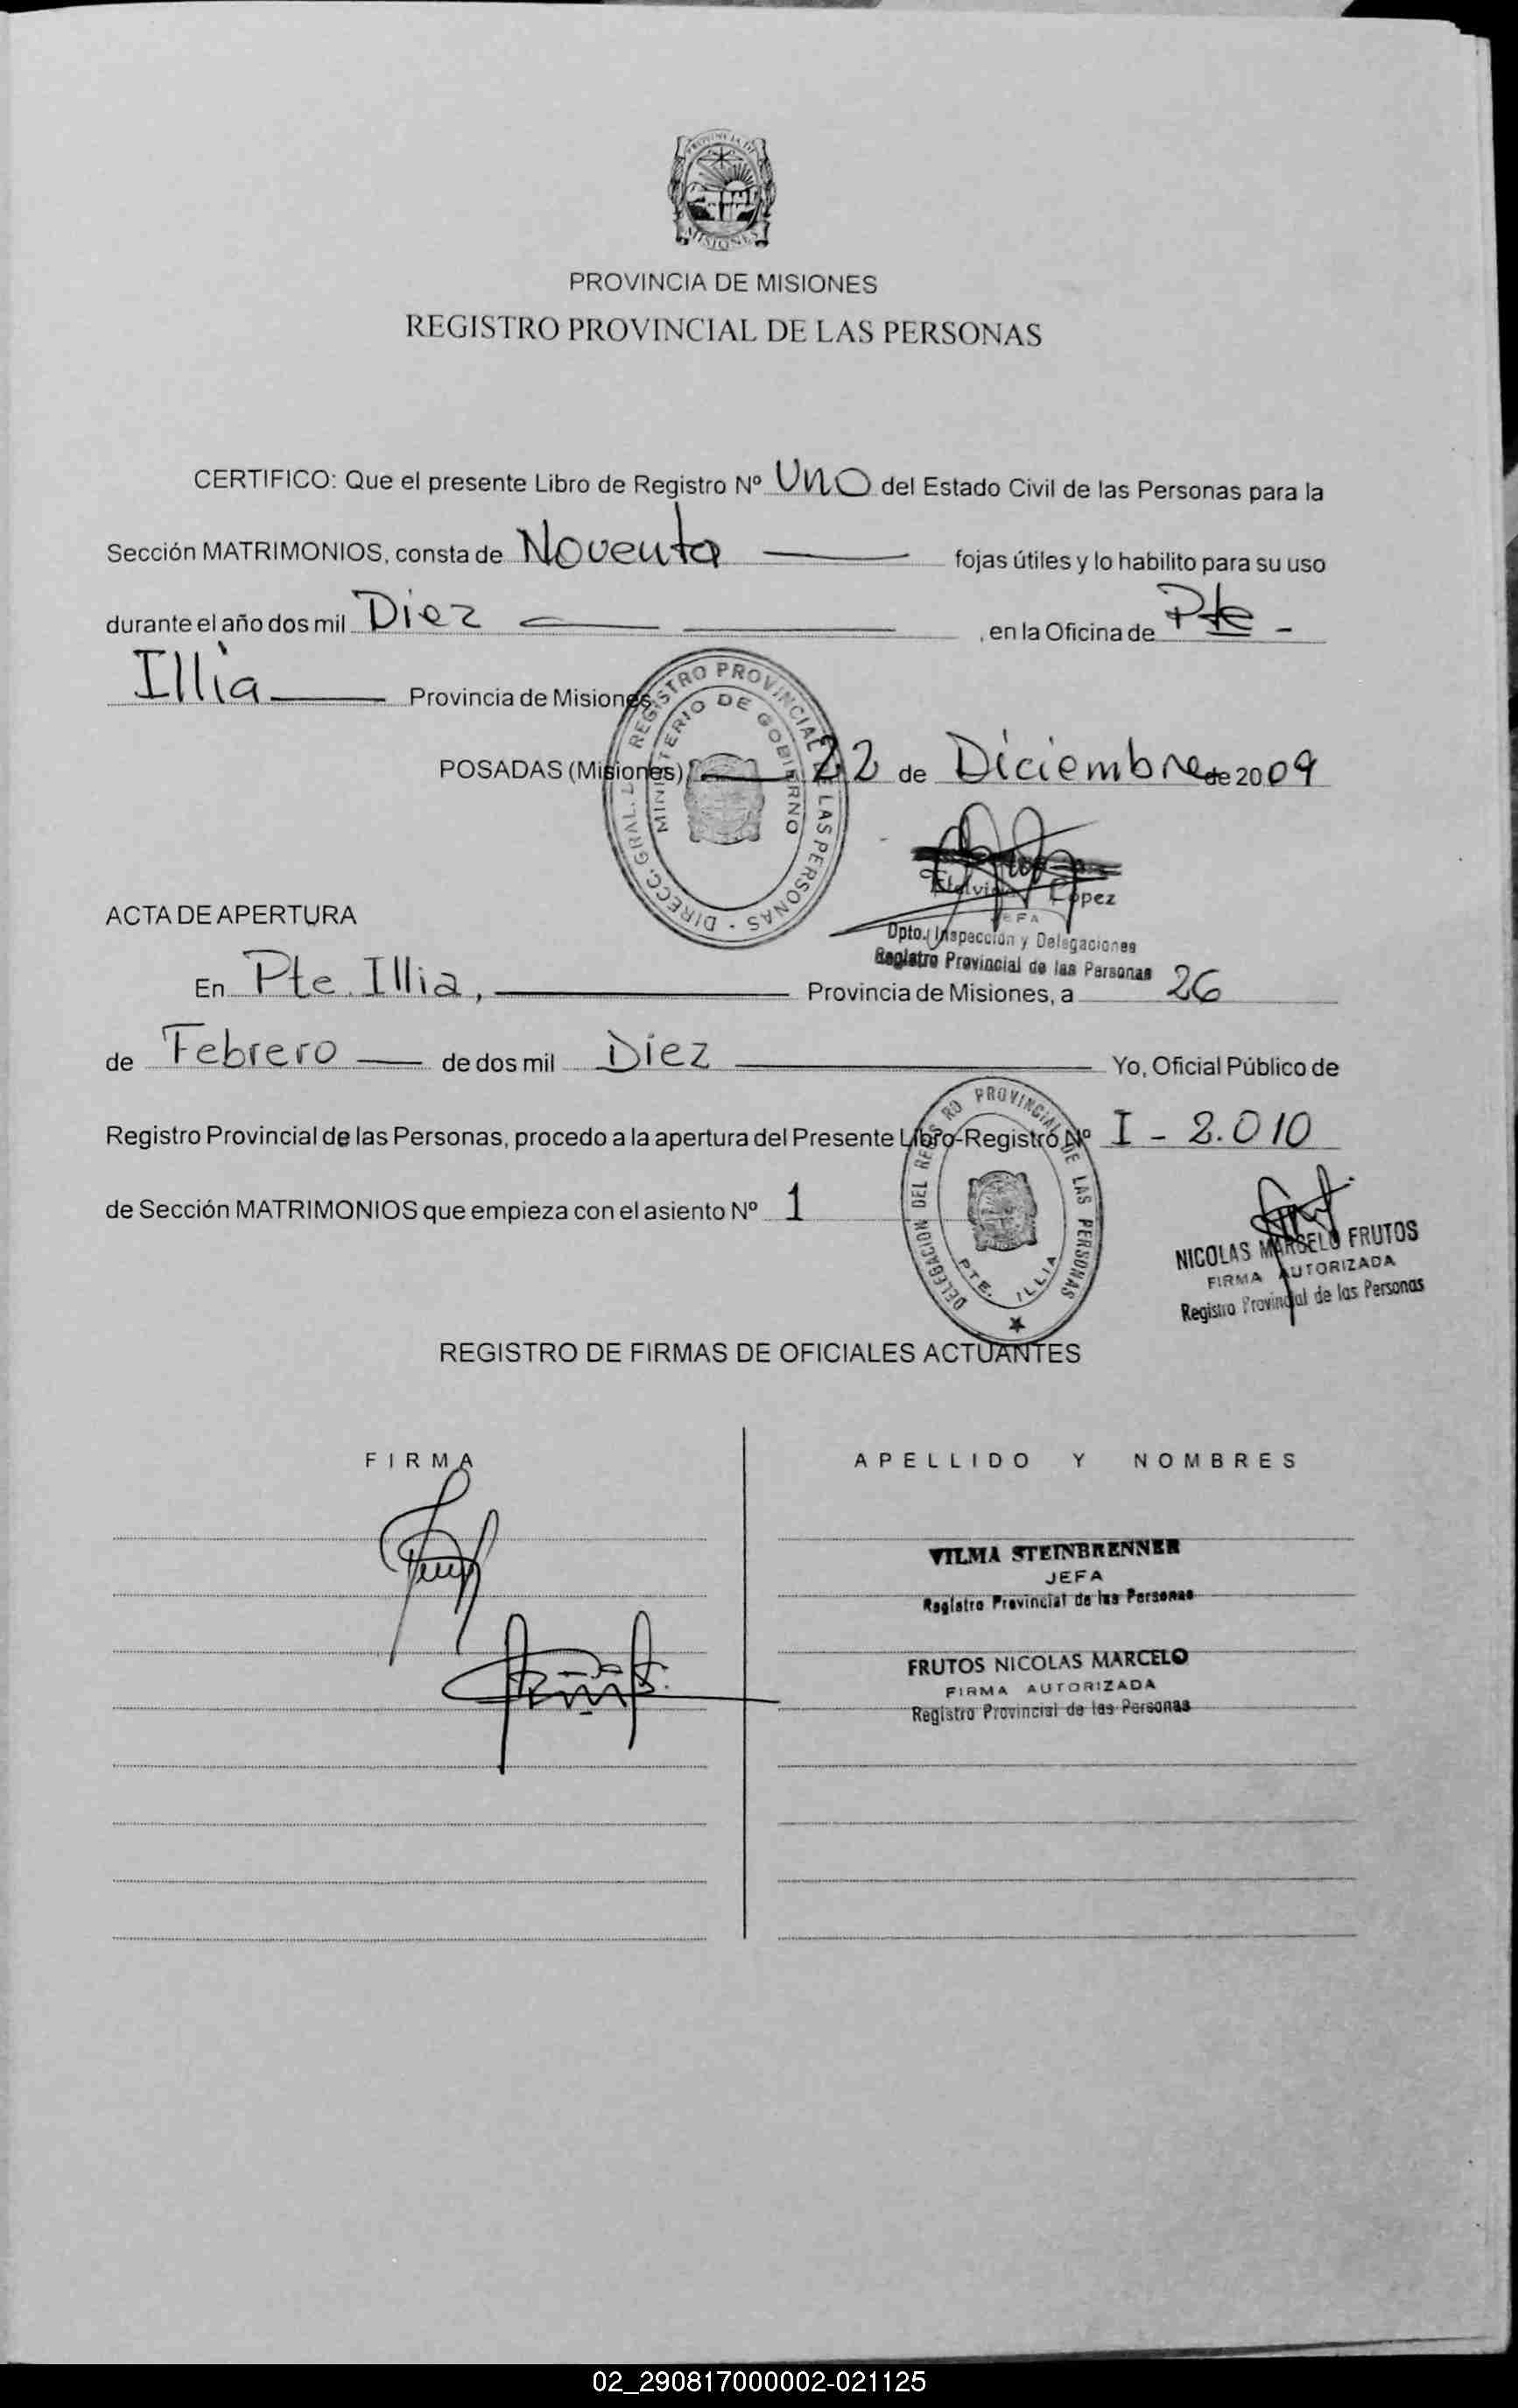 PROVINCIA DE
MISIONES
PROVINCIA DE MISIONES
REGISTRO PROVINCIAL DE LAS PERSONAS
CERTIFICO: Que el presente Libro de Registro Nº Uno del Estado Civil de las Personas para la
Sección MATRIMONIOS, consta de Noventa fojas útiles y lo habilito para su uso
durante el año dos mil Diez , en la Oficina de Pte -
Illia Provincia de Misiones
POSADAS (Misiones), 22 de Diciembre de 2009
DIRECC. GRAL. REGISTRO PROVINCIAL DE LAS PERSONAS -
MINISTERIO DE GOBIERNO
López
JEFA
Dpto. Inspección y Delegaciones
Registro Provincial de las Personas
ACTA DE APERTURA
En Pte. Illia, Provincia de Misiones, a 26
de Febrero de dos mil Diez Yo, Oficial Público de
Registro Provincial de las Personas, procedo a la apertura del Presente Libro-Registro Nº I - 2.010
de Sección MATRIMONIOS que empieza con el asiento Nº 1
DELEGACION DEL REGISTRO PROVINCIAL DE LAS PERSONAS
PTE. ILLIA
NICOLAS MARCELO FRUTOS
FIRMA AUTORIZADA
Registro Provincial de las Personas
REGISTRO DE FIRMAS DE OFICIALES ACTUANTES
FIRMA APELLIDO Y NOMBRES
VILMA STEINBRENNER
JEFA
Registro Provincial de las Personas
FRUTOS NICOLAS MARCELO
FIRMA AUTORIZADA
Registro Provincial de las Personas
02_290817000002-021125